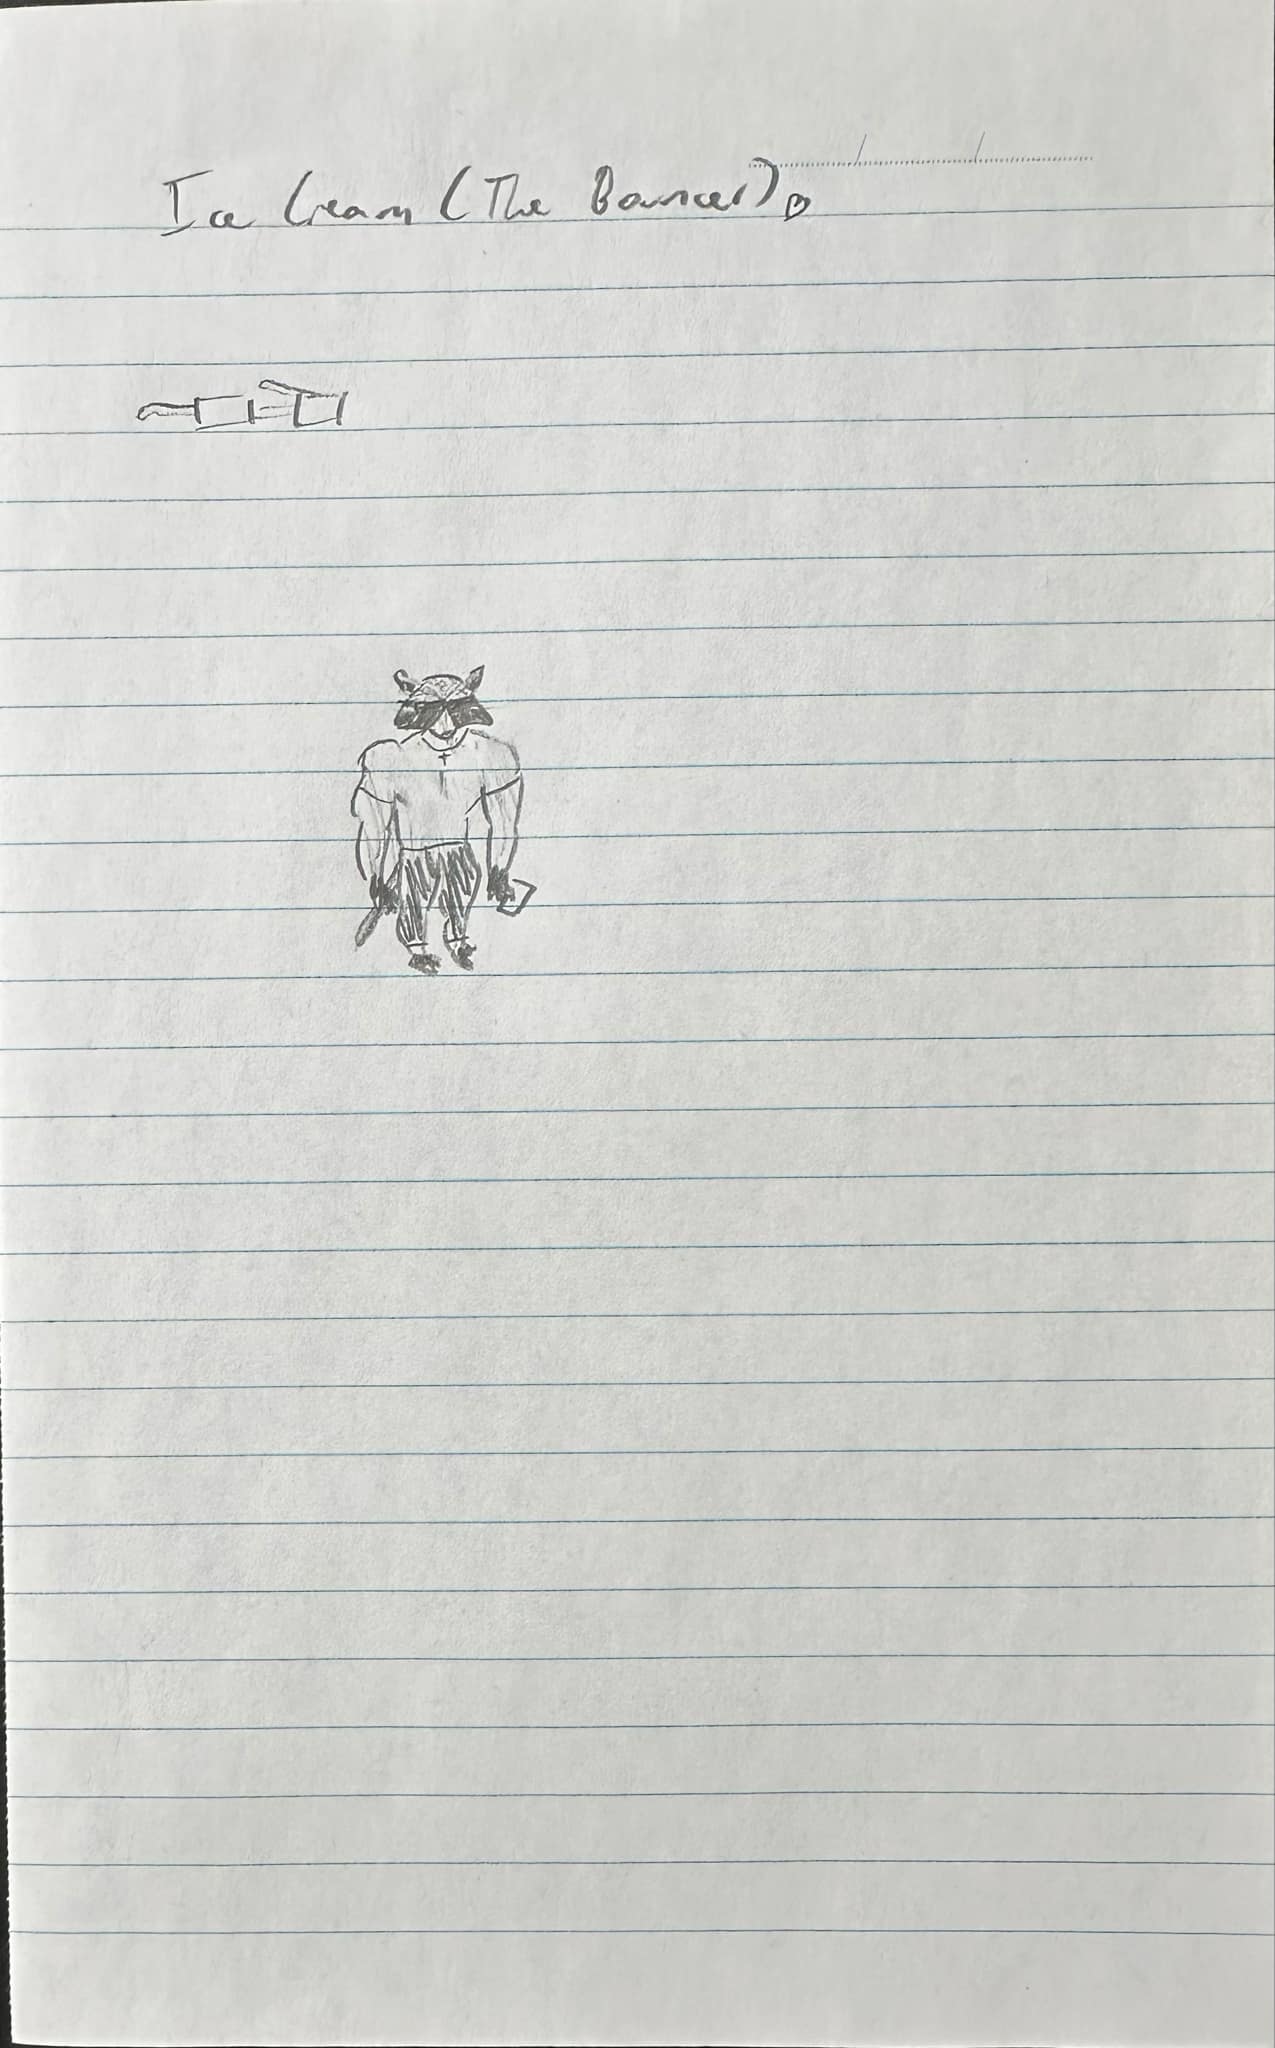 Ice Cream (The Bouncer)